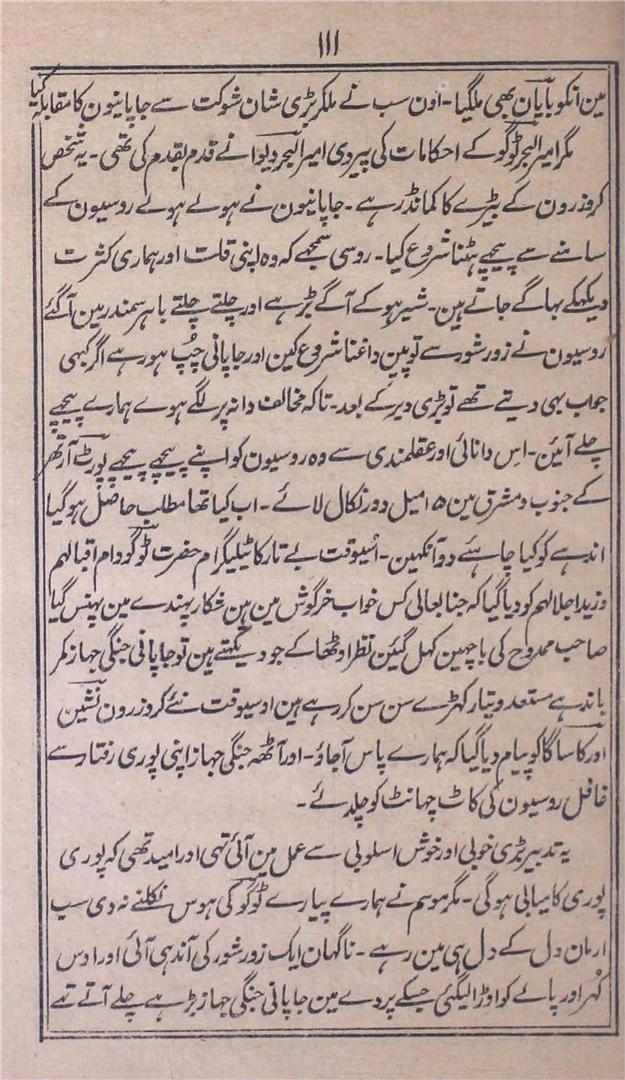 ۱۱۱
مین انکو بایان بھی ملگیا۔ اون سب نے ملکر بڑی شان شوکت سے جاپانیون کا مقابلہ کیا
مگر امیر البحر ٹوگو کے احکامات کی پیروی امیر البحر دیوا نے قدم بقدم کی تھی۔ یہ شخص
کروزرون کے بیڑے کا کمانڈر ہے۔ جاپانیون نے ہولے ہولے روسیون کے
سامنے سے پیچھے ہٹنا شروع کیا۔ روسی سمجھے کہ وہ اپنی قلت اور ہماری کثرت
دیکھکے بھاگے جاتے ہین۔ شیر ہو کے آگے بڑہے اور چلتے چلتے باہر سمندر مین آگئے
روسیون نے زور شور سے توپین داغنا شروع کین اور جاپانی چُپ ہو رہے اگر کبھی
جواب بھی دیتے تھے تو بڑی دیر کے بعد۔ تاکہ مخالف دانہ پر لگے ہوے ہمارے پیچھے
چلے آئین۔ اس دانائی اور عقلمندی سے وہ روسیون کو اپنے پیچھے پیچھے پورٹ آرتھر
کے جنوب و مشرق مین ۱۵ میل دور نکال لائے۔ اب کیا تھا مطلب حاصل ہو گیا
اندہے کو کیا چاہئے دو آنکھین۔ اُسیوقت بے تار کا ٹیلیگرام حضرت ٹوگو دام اقبالہم
وزید اجلالہم کو دیا گیا کہ جنابعالی کس خواب خرگوش مین ہین شکار پہندے مین پہنس گیا
صاحب ممدوح کی باچھین کہل گئین نظر اوٹھا کے جو دیکھتے ہین تو جاپانی جنگی جہاز کمر
باندہے مستعد و تیار کہڑے سن سن کر رہے ہین اوسیوقت نئے کروزرون نشین
اور کاساگا کو پیام دیا گیا کہ ہمارے پاس آجاؤ۔ اور آٹھہ جنگی جہاز اپنی پوری رفتار سے
غافل روسیون کی کاٹ چہانٹ کو چلدئے۔
یہ تدبیر بڑی خوبی اور خوش اسلوبی سے عمل مین آئی تہی اور امید تھی کہ پوری
پوری کامیابی ہوگی۔ مگر موسم نے ہمارے پیارے ٹوگو کی ہوس نکلنے نہ دی سب
ارمان دل کے دل ہی مین رہے۔ ناگہان ایک زور شور کی آندہی آئی اور اوس
کُہر اور پالے کو اوڑا لیگئی جسکے پردے مین جاپانی جنگی جہاز بڑہے چلے آتے تھے